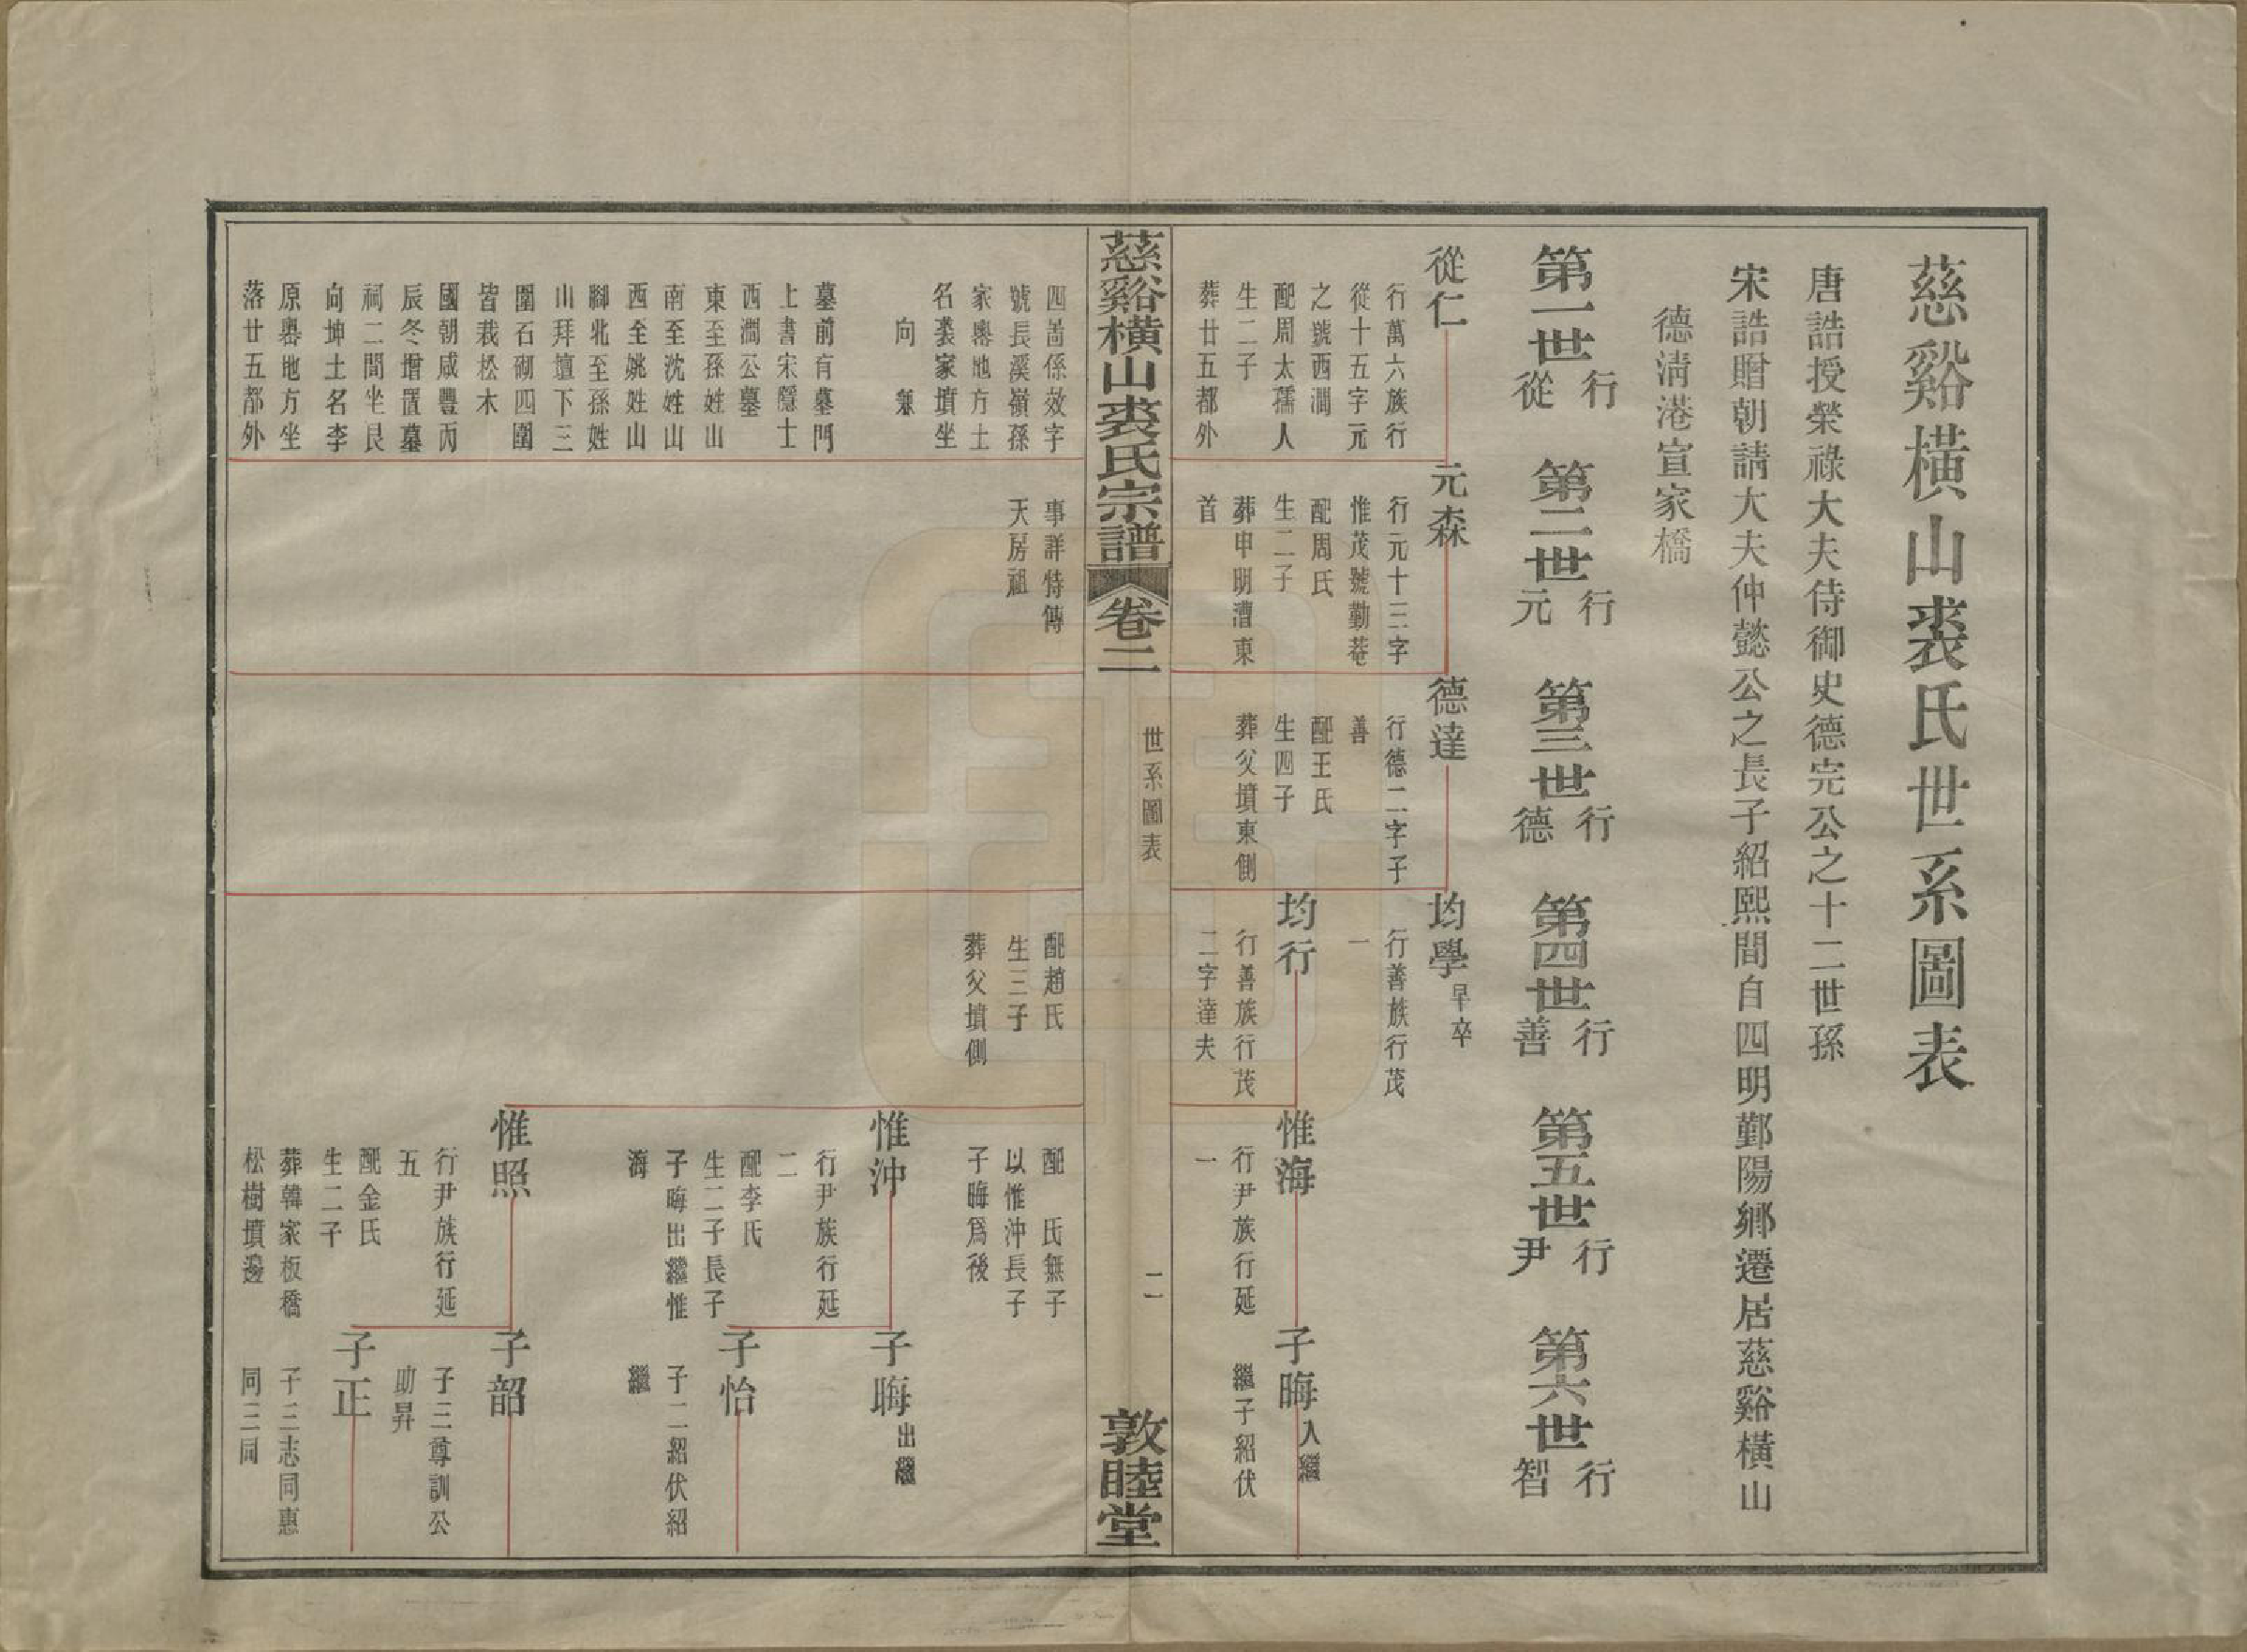 慈谿橫山裘氏世系圖表
唐誥授榮祿大夫侍御史德完公之十二世孫
宋誥贈朝請大夫仲懿公之長子紹熙間自四明鄞陽鄉遷居慈谿橫山
德淸港宣家橋
第一世 從行
第二世 元行
第三世 德行
第四世 善行
第五世 尹行
第六世 智行
從仁
行萬六族行
從十五字元
之號西澗
配周太孺人
生二子
葬廿五都外
元森
行元十三字
惟茂號勤菴
配周氏
生二子
葬申明漕東
首
德達
行德二字子
善
配王氏
生四子
葬父墳東側
均學早卒
行善族行茂
一
均行
行善族行茂
二字達夫
惟海
行尹族行延
一
子晦入繼
繼子紹伏
慈谿橫山裘氏宗譜
卷二
世系圖表
二
敦睦堂
四啚係效字
號長溪嶺孫
家嶴地方土
名裘家墳坐
向 兼
墓前有墓門
上書宋隱士
西澗公墓
東至孫姓山
南至沈姓山
西至姚姓山
腳北至孫姓
山拜壇下三
圍石砌四圍
皆栽松木
國朝咸豐丙
辰冬增置墓
祠二間坐艮
向坤土名李
原嶴地方坐
落廿五都外
事詳特傳
天房祖
配趙氏
生三子
葬父墳側
配 氏無子
以惟沖長子
子晦爲後
惟沖
行尹族行延
二
配李氏
生二子長子
子晦出繼惟
海
惟照
行尹族行延
五
配金氏
生二子
葬韓家板橋
松樹墳邊
子晦出繼
子怡
子二紹伏紹
繼
子韶
子三尊訓公
助昇
子正
子三志同惠
同三同